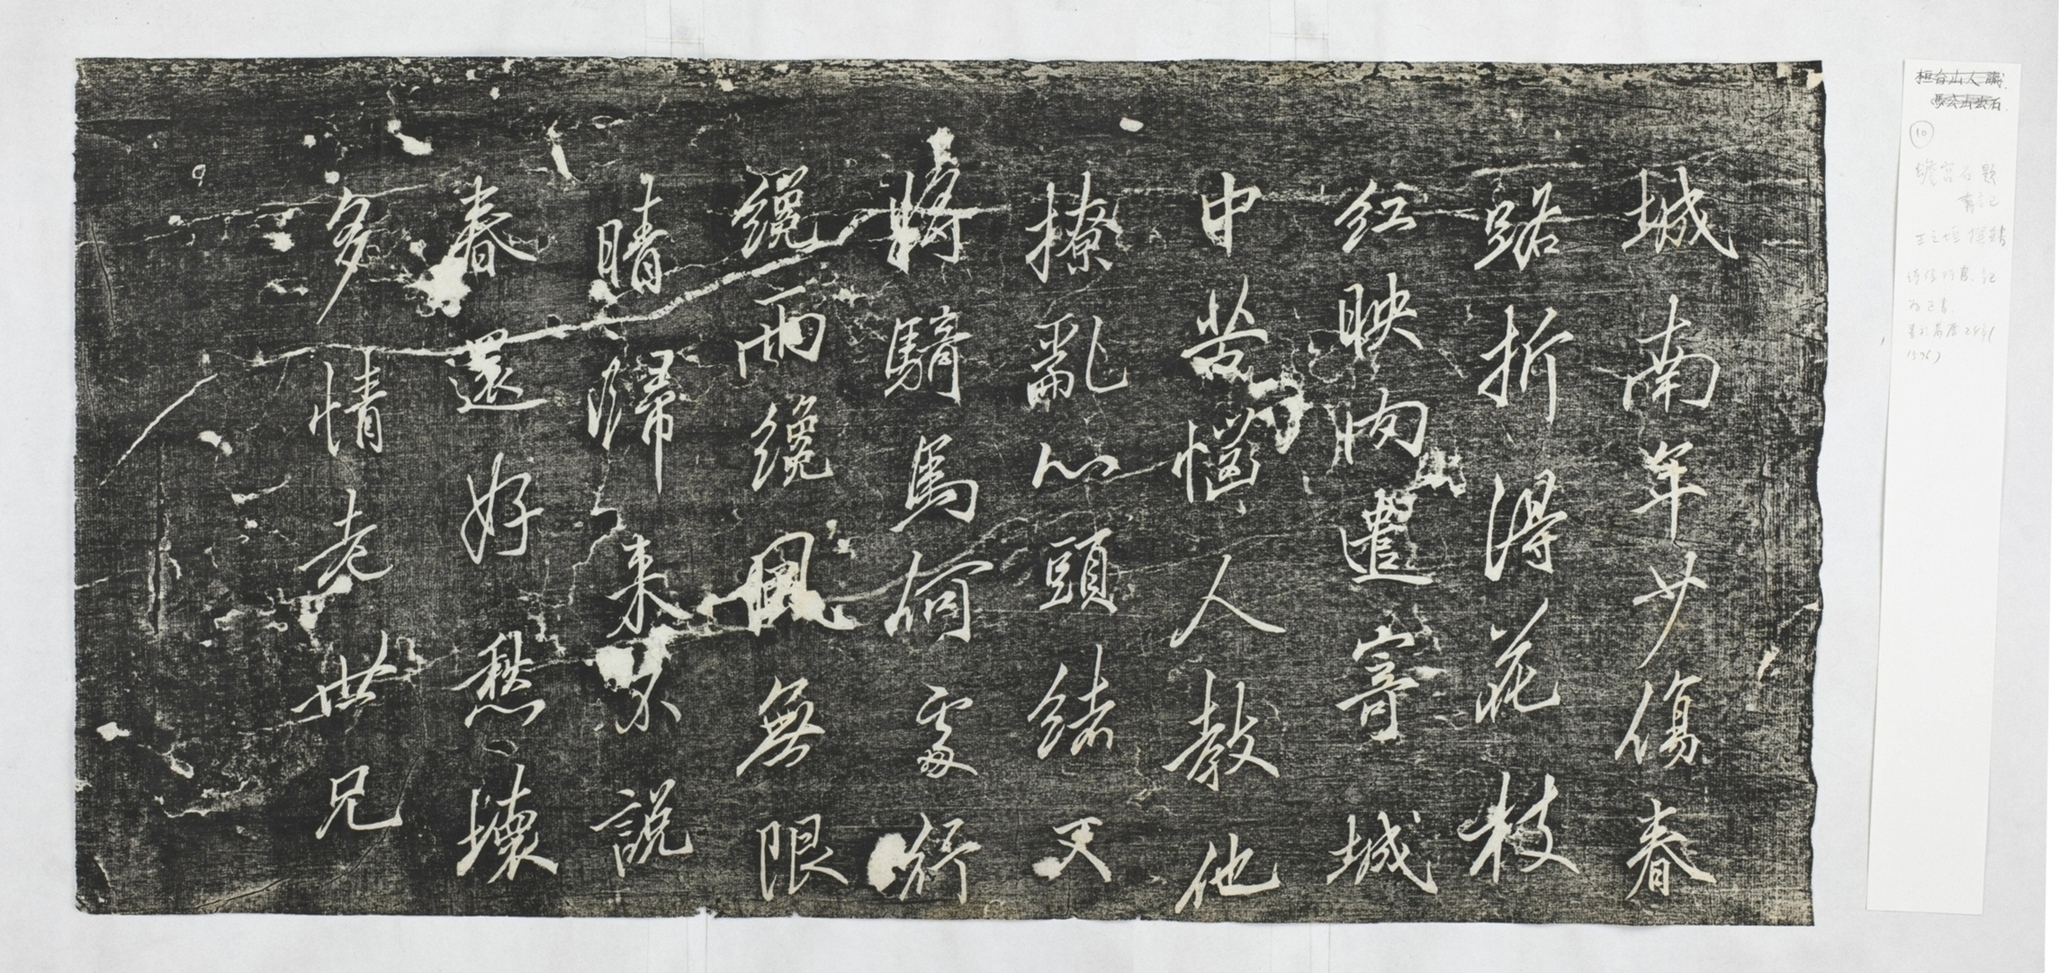 城南年少傷春
路折得花枝
紅映肉還寄城
中苦惱人教他
撩亂心頭緒天
將騎馬何處行
纔雨纔風無限
晴歸來說
春還好愁壞
多情老世兄
10